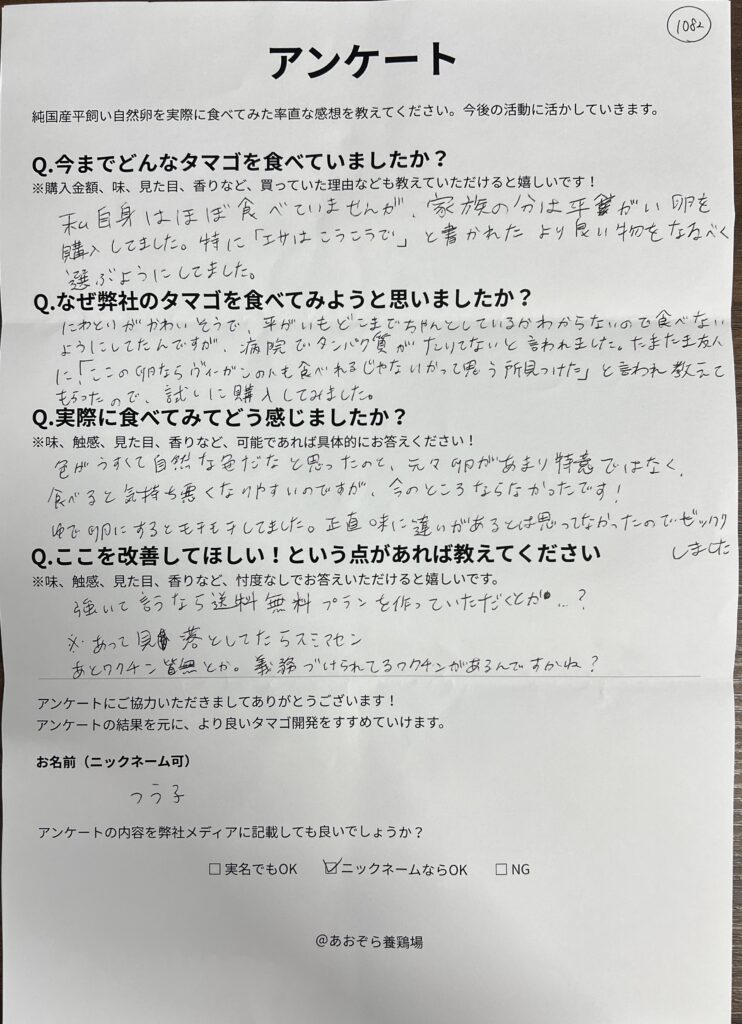 1082
アンケート
純国産平飼い自然卵を実際に食べてみた率直な感想を教えてください。今後の活動に活かしていきます。
Q.今までどんなタマゴを食べていましたか？
※購入金額、味、見た目、香りなど、買っていた理由なども教えていただけると嬉しいです！
私自身はほぼ食べていませんが、家族の分は平がい卵を
購入してました。特に「エサはこうこうで」と書かれたより良い物をなるべく
選ぶようにしてました。
Q.なぜ弊社のタマゴを食べてみようと思いましたか？
にわとりがかわいそうで、平がいもどこまでちゃんとしているかわからないので食べない
ようにしてたんですが、病院でタンパク質がたりてないと言われました。たまたま友人
に「ここの卵ならヴィーガンの人も食べれるじゃないかって思う所見つけた」と言われ教えて
もらったので、試しに購入してみました。
Q.実際に食べてみてどう感じましたか？
※味、触感、見た目、香りなど、可能であれば具体的にお答えください！
色がうすくて自然な色だなと思ったのと、元々卵があまり特意ではなく、
食べると気持ち悪くなりやすいのですが、今のところならなかったです！
ゆで卵にするとモチモチしてました。正直味に違いがあるとは思ってなかったのでビックリ
しました
Q.ここを改善してほしい！という点があれば教えてください
※味、触感、見た目、香りなど、忖度なしでお答えいただけると嬉しいです。
強いて言うなら送料無料プランを作っていただくとか…？
※あって見落としてたらスミマセン
あとワクチン皆無とか。義務づけられてるワクチンがあるんですかね？
アンケートにご協力いただきましてありがとうございます！
アンケートの結果を元に、より良いタマゴ開発をすすめていけます。
お名前（ニックネーム可）
つう子
アンケートの内容を弊社メディアに記載しても良いでしょうか？
□ 実名でもOK ☑ ニックネームならOK □ NG
@あおぞら養鶏場